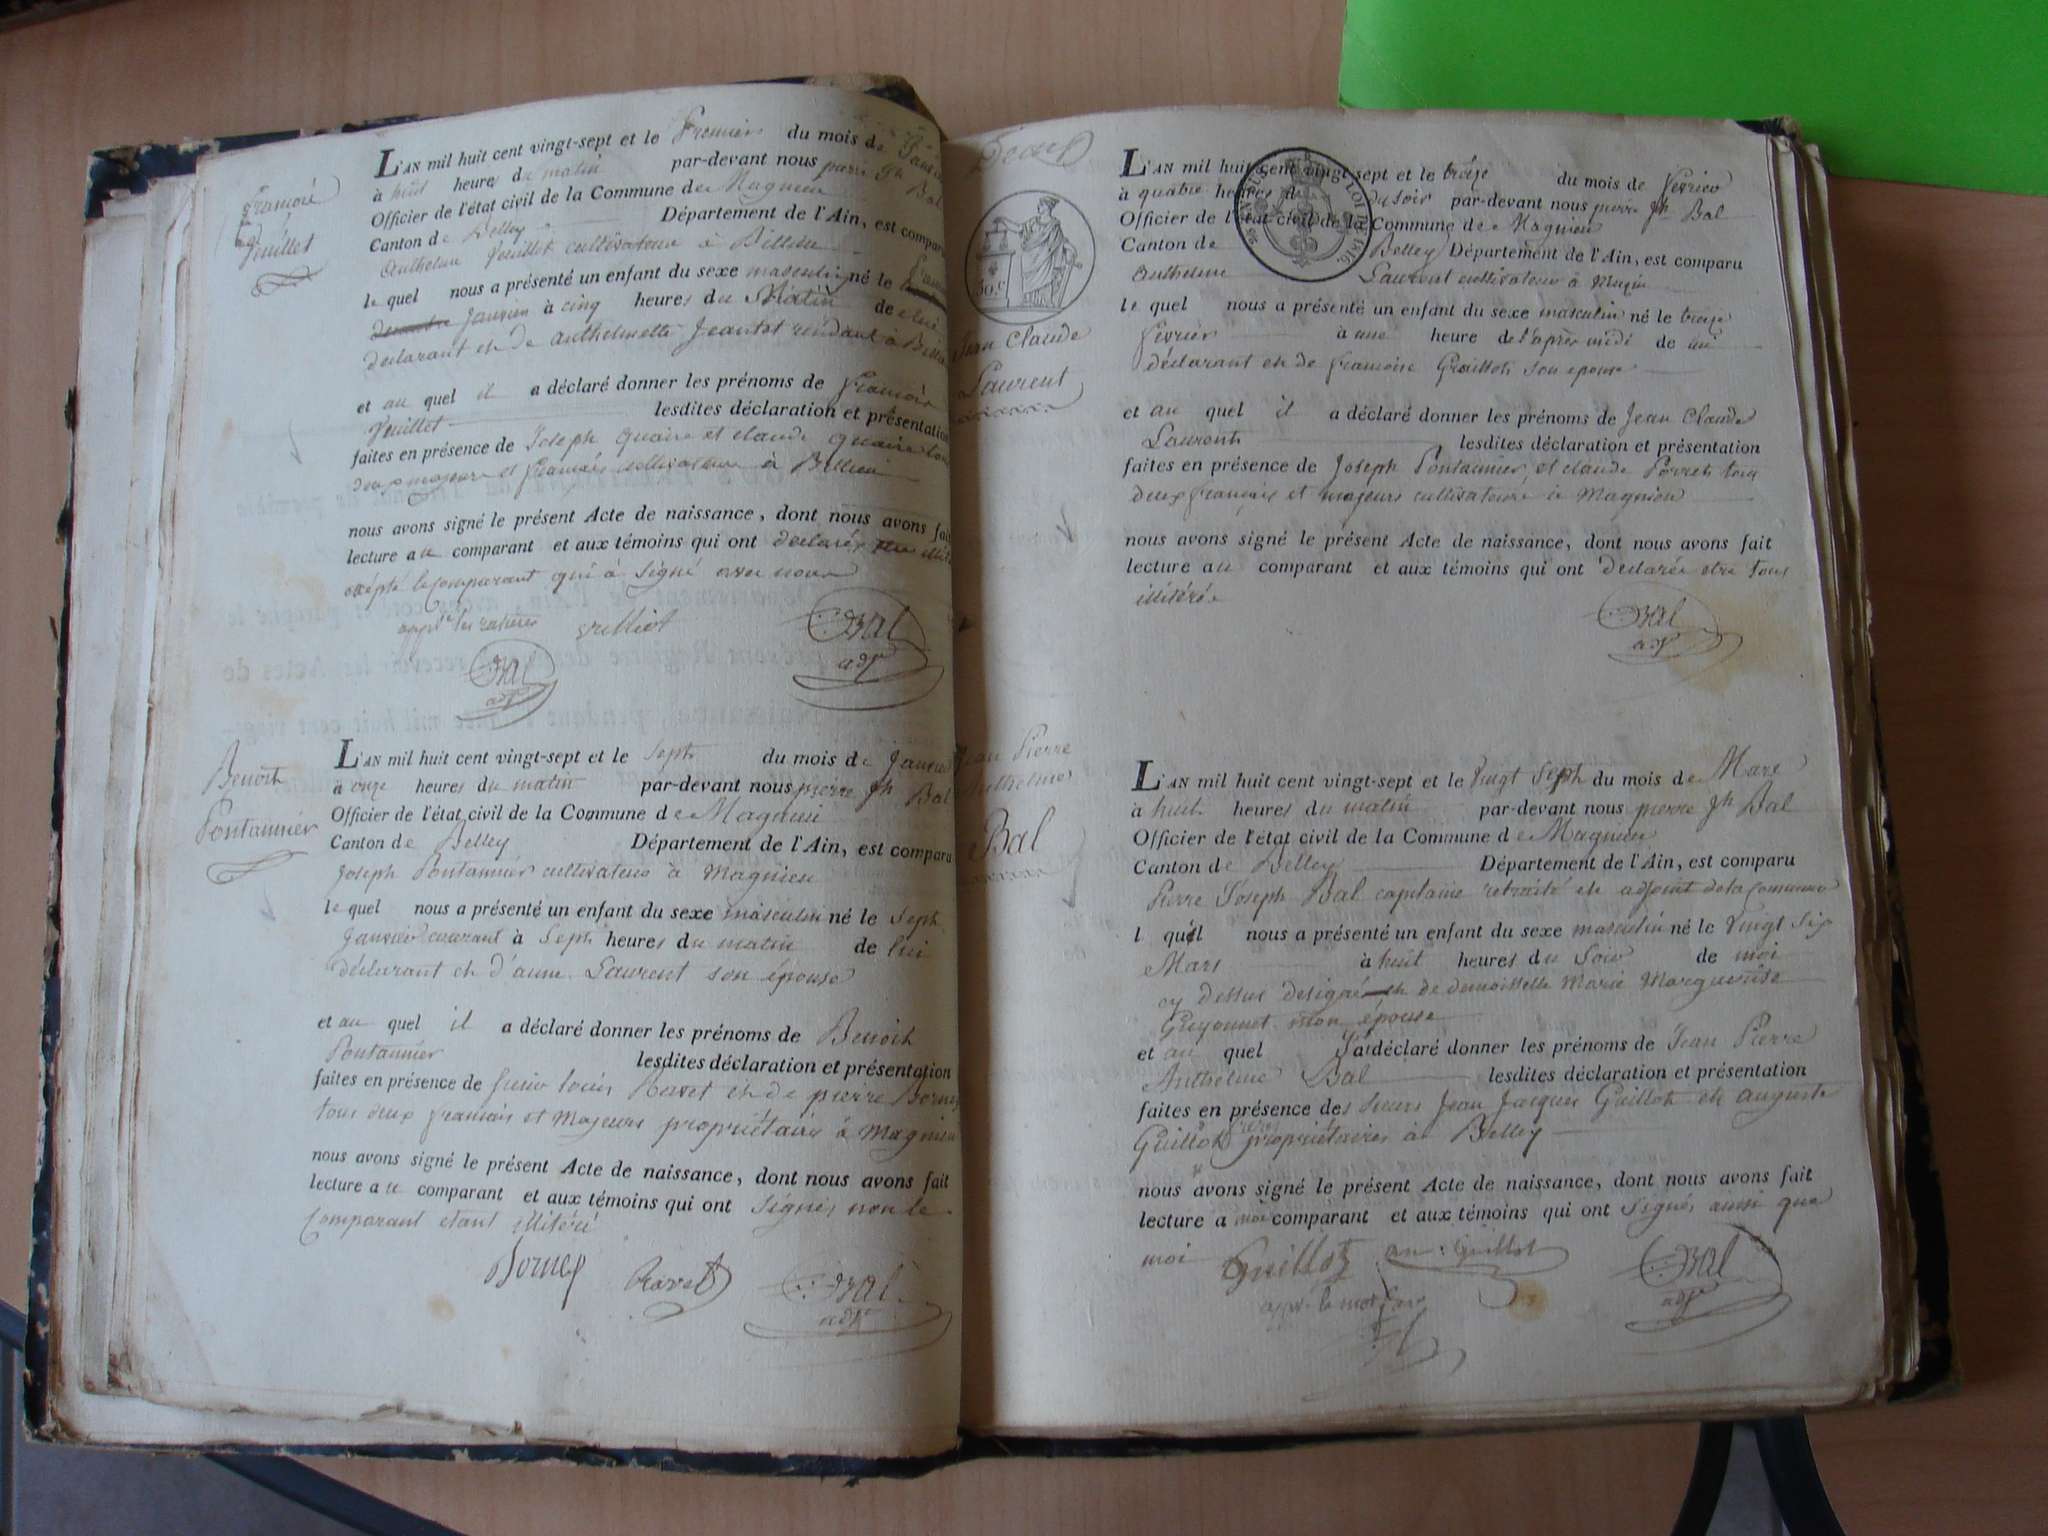 François
Vuillet
L'AN mil huit cent vingt-sept et le Premier du mois de
à huit heures du matin par-devant nous pierre Jh Bal
Officier de l'état civil de la Commune de Magnieu
Canton de Belley Département de l'Ain, est comparu
Anthelme Vuillet cultivateur à Billieu
le quel nous a présenté un enfant du sexe masculin né le
Janvier à cinq heures du Matin de
déclarant et de anthelmette Jeantet
et au quel il a déclaré donner les prénoms de François
Vuillet lesdites déclaration et présentation
faites en présence de Joseph quaire et claude quaire tous
deux majeurs et français cultivateurs à Billieu
nous avons signé le présent Acte de naissance, dont nous avons fait
lecture au comparant et aux témoins qui ont déclarés
excepté le comparant qui à signé avec nous
Bal
adjt
Bal
adjt
Benoit
Pontannier
L'AN mil huit cent vingt-sept et le Sept du mois de Janvier
à onze heures du matin par-devant nous pierre Jh Bal
Officier de l'état civil de la Commune de Magnieu
Canton de Belley Département de l'Ain, est comparu
Joseph Pontannier cultivateur à Magnieu
le quel nous a présenté un enfant du sexe masculin né le Sept
Janvier courant à Sept heures du matin de lui
déclarant et d'anne Laurent son épouse
et au quel il a déclaré donner les prénoms de Benoit
Pontannier lesdites déclaration et présentation
faites en présence de Sieur louis Ravet et de pierre Bornet
tous deux français et Majeurs propriétaires à Magnieu
nous avons signé le présent Acte de naissance, dont nous avons fait
lecture au comparant et aux témoins qui ont Signés non le
Comparant etant illitéré
Ravet
Bal
adjt
30.c
Jean Claude
Laurent
L'AN mil huit cent vingt-sept et le treize du mois de Fevrier
à quatre heures du soir par-devant nous pierre Jh Bal
Officier de l'état civil de la Commune de Magnieu
Canton de Belley Département de l'Ain, est comparu
Anthelme Laurent cultivateur à
le quel nous a présenté un enfant du sexe masculin né le treize
fevrier à une heure de l'après midi de lui
déclarant et de francoise Guillot son epouse
et au quel il a déclaré donner les prénoms de Jean Claude
Laurent lesdites déclaration et présentation
faites en présence de Joseph Pontannier et claude Perret tous
deux français et majeurs cultivateurs à Magnieu
nous avons signé le présent Acte de naissance, dont nous avons fait
lecture au comparant et aux témoins qui ont declarée etre tous
illitéré
Bal
adjt
Jean Pierre
Anthelme
Bal
L'AN mil huit cent vingt-sept et le Vingt Sept du mois de Mars
à huit heures du matin par-devant nous pierre Jh Bal
Officier de l'état civil de la Commune de Magnieu
Canton de Belley Département de l'Ain, est comparu
Pierre Joseph Bal capitaine retraité et adjoint de la commune
l quel nous a présenté un enfant du sexe masculin né le Vingt Six
Mars à huit heures du Soir de moi
cy dessus designé et de demoisselle Marie Marguerite
Guyonnet mon épouse
et au quel J'ai déclaré donner les prénoms de Jean Pierre
Anthelme Bal lesdites déclaration et présentation
faites en présence des Sieurs Jean Jacques Guillot et auguste
Guillot freres propriétaires à Belley
nous avons signé le présent Acte de naissance, dont nous avons fait
lecture a moi comparant et aux témoins qui ont Signés ainsi que
moi Guillot Guillot
Bal
adjt